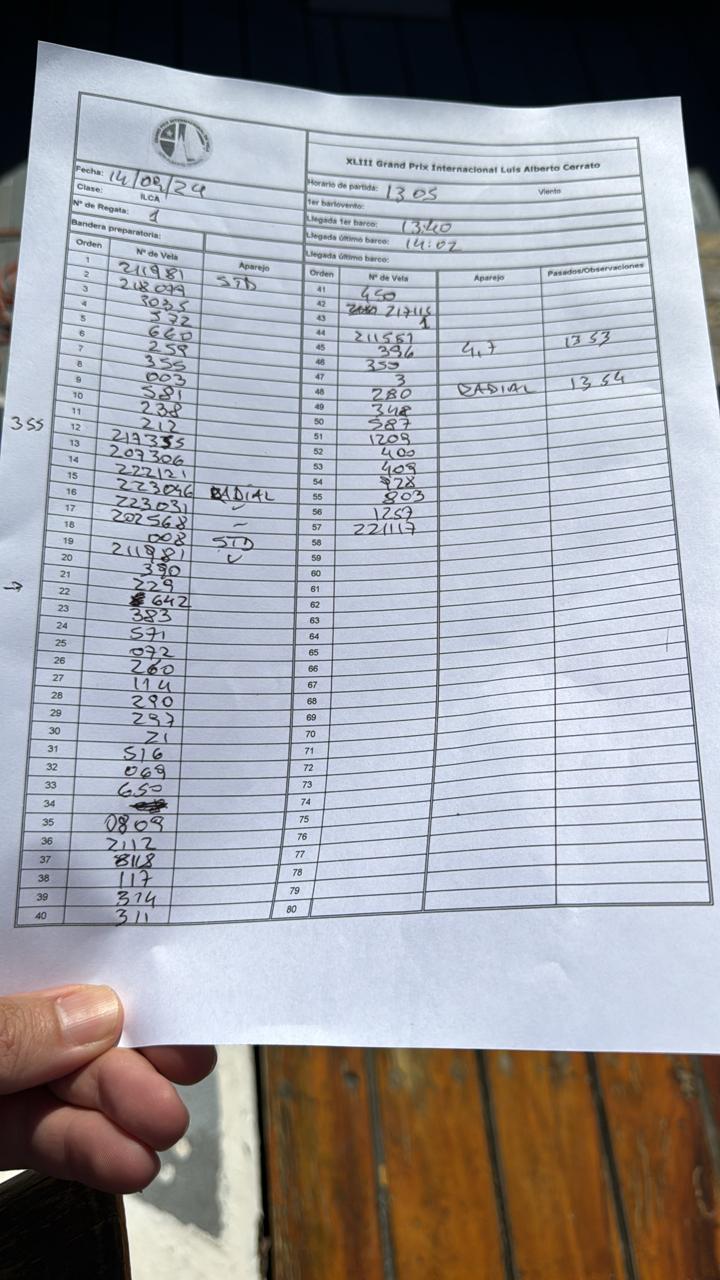 XLIII Grand Prix Internacional Luis Alberto Cerrato
Fecha: 14/09/24
Clase: ILCA
Nº de Regata: 1
Bandera preparatoria:
Horario de partida: 13 05 Viento
1er barlovento:
Llegada 1er barco: 13:40
Llegada último barco: 14:02
Llegada último barco:
Orden Nº de Vela Aparejo
1 211981
2 218079 STD
3 3035
4 572
5 660
6 259
7 355
8 003
9 581
10 238
11 212
355 12 217355
13 207306
14 222121
15 223046 RADIAL
16 223031
17 202568
18 008 STD
19 211981
20 390
21 229
→ 22 642
23 383
24 571
25 072
26 260
27 114
28 290
29 297
30 21
31 516
32 069
33 650
34
35 0809
36 2112
37 8118
38 117
39 374
40 311
Orden Nº de Vela Aparejo Pasados/Observaciones
41 450
42 217115
43 1
44 211551
45 396 4,7 13 53
46 355
47 3
48 280 RADIAL 13 54
49 348
50 587
51 1209
52 400
53 409
54 928
55 803
56 1257
57 221117
58
59
60
61
62
63
64
65
66
67
68
69
70
71
72
73
74
75
76
77
78
79
80